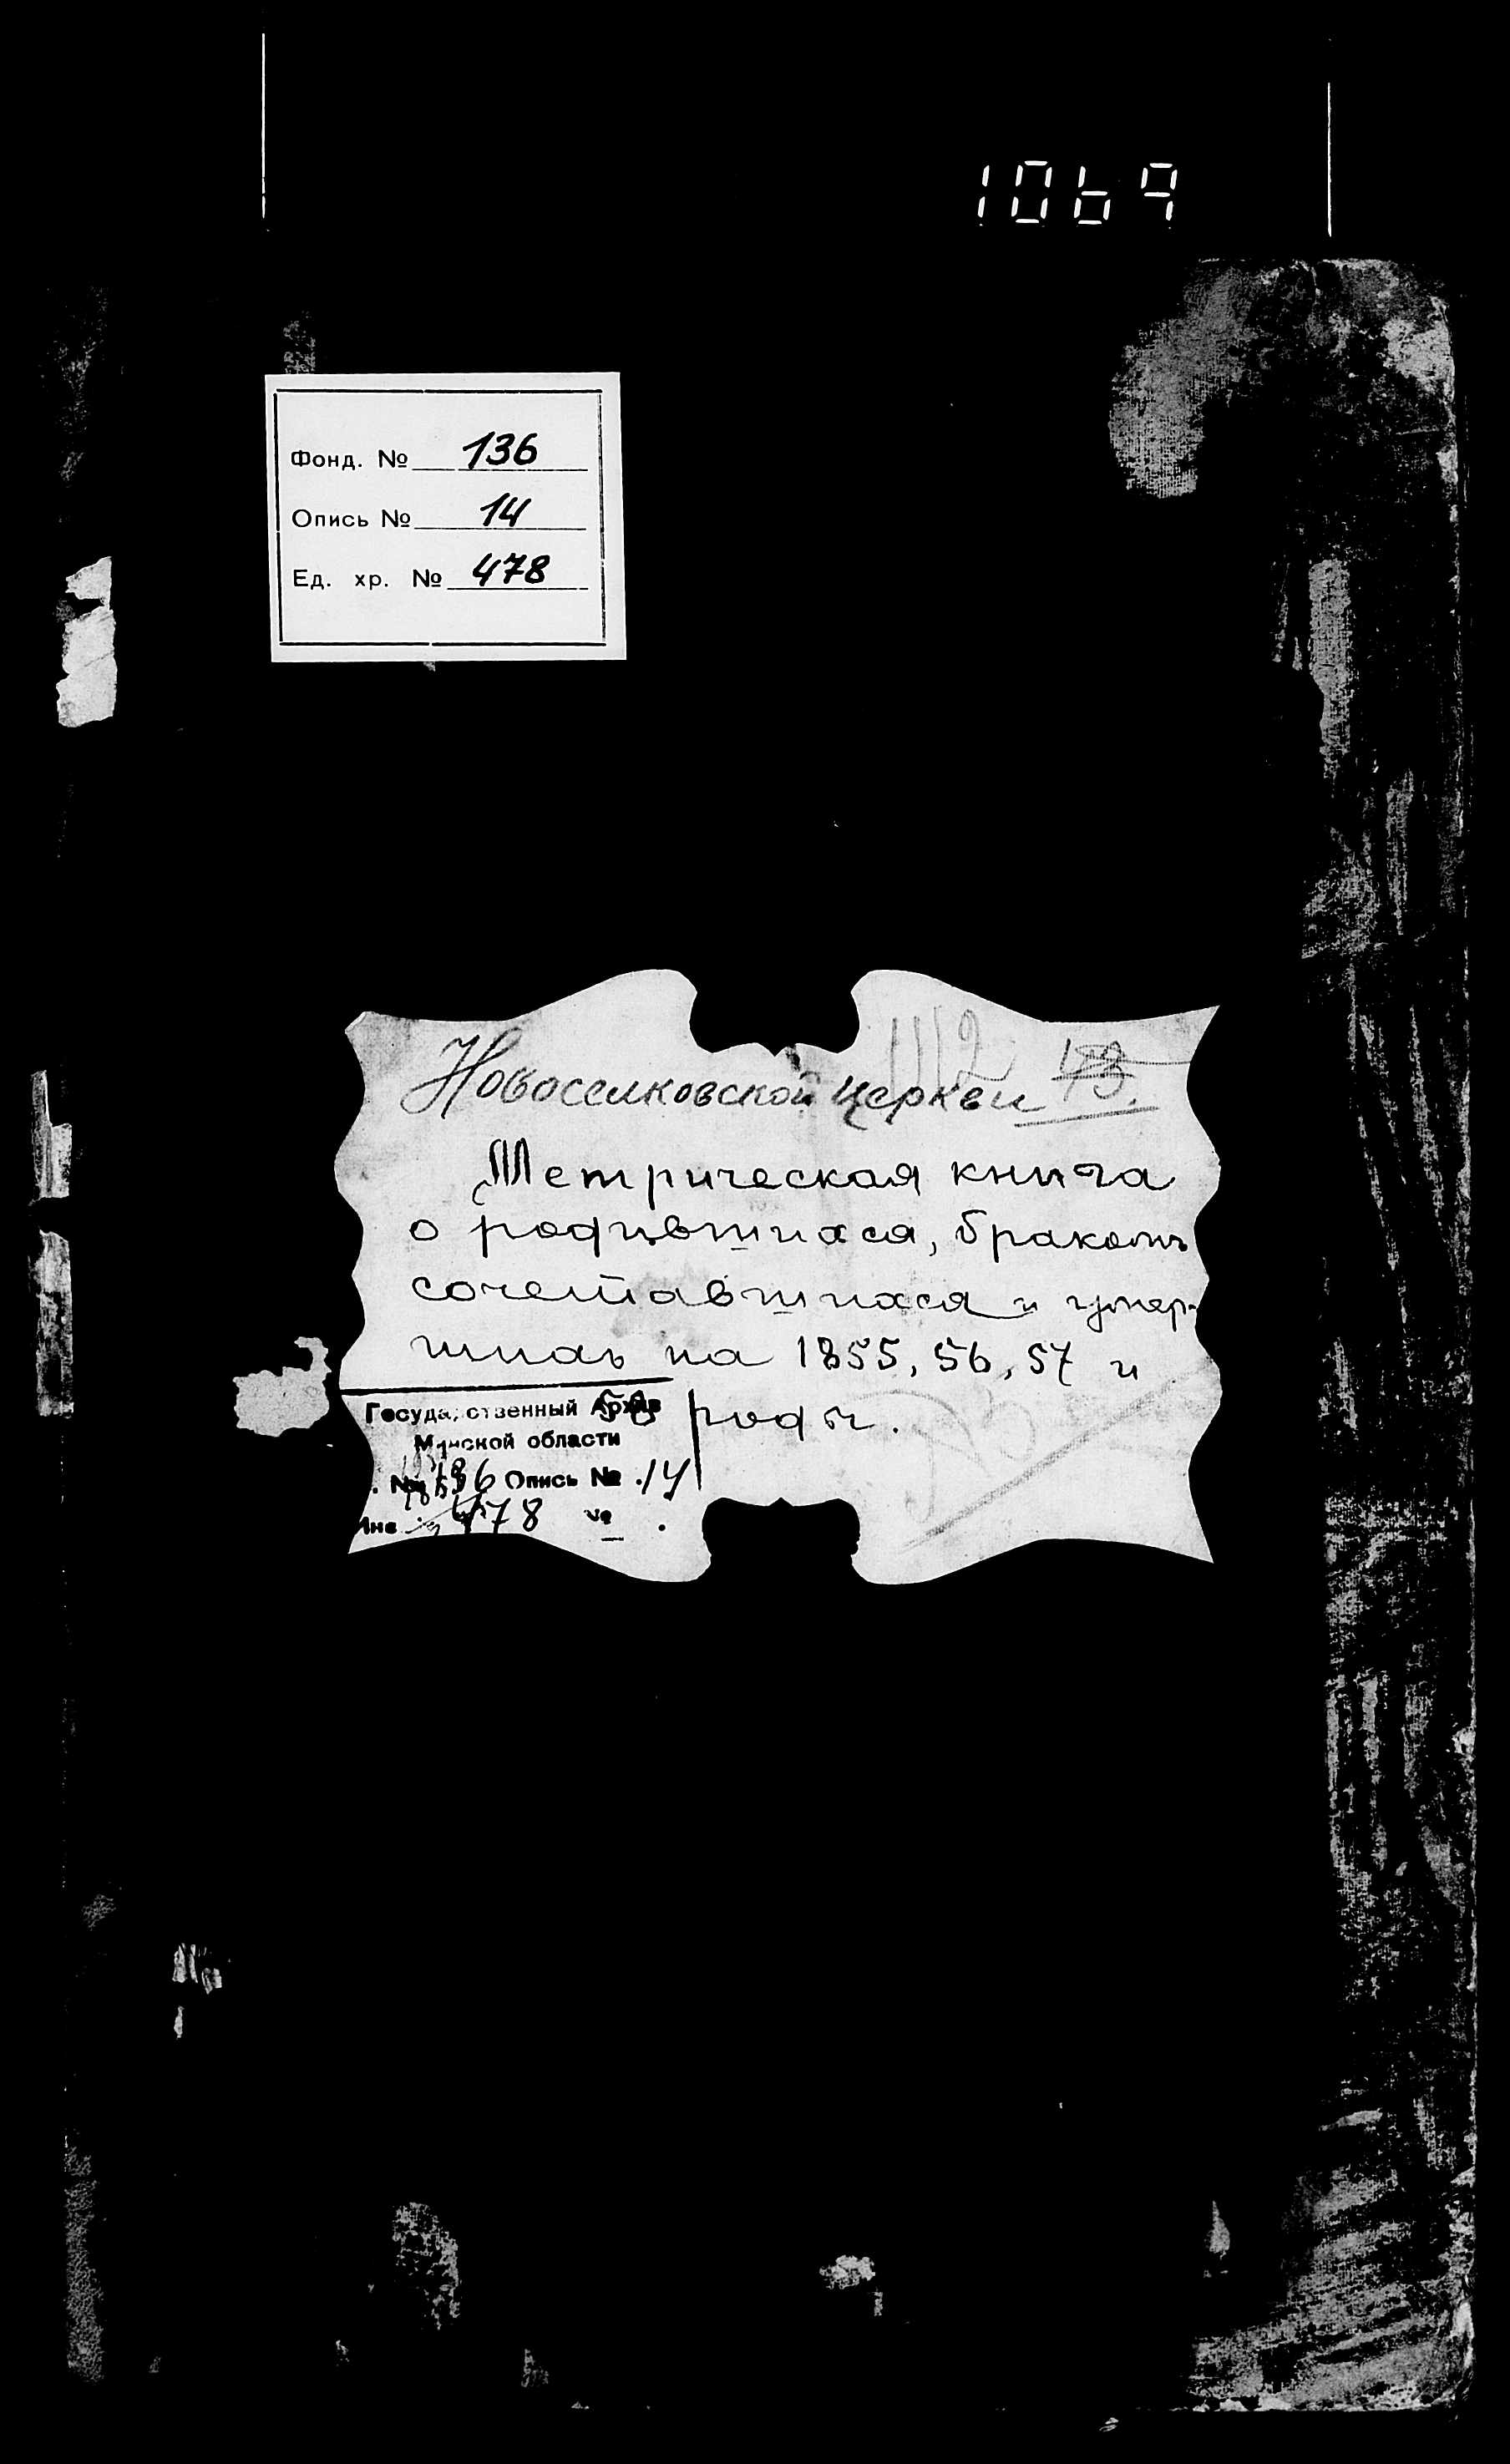 1069
Фонд. № 136
Опись № 14
Ед. хр. № 478
1112
Новоселковской церкви
Метрическая книга
о родившихся, бракомъ
сочетавшихся и умер-
шихъ на 1855, 56, 57 и
58 годы.
Государственный Архив
Минской области
№ 136 Опись № 14
478